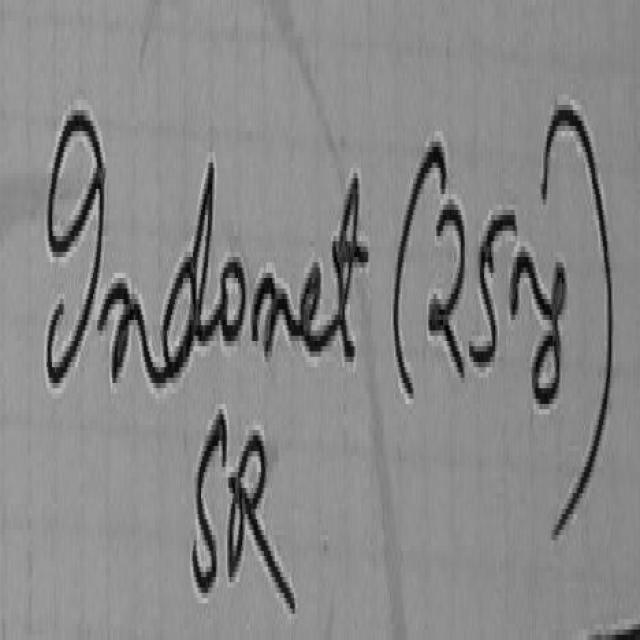 Indonet (25mg)
SR